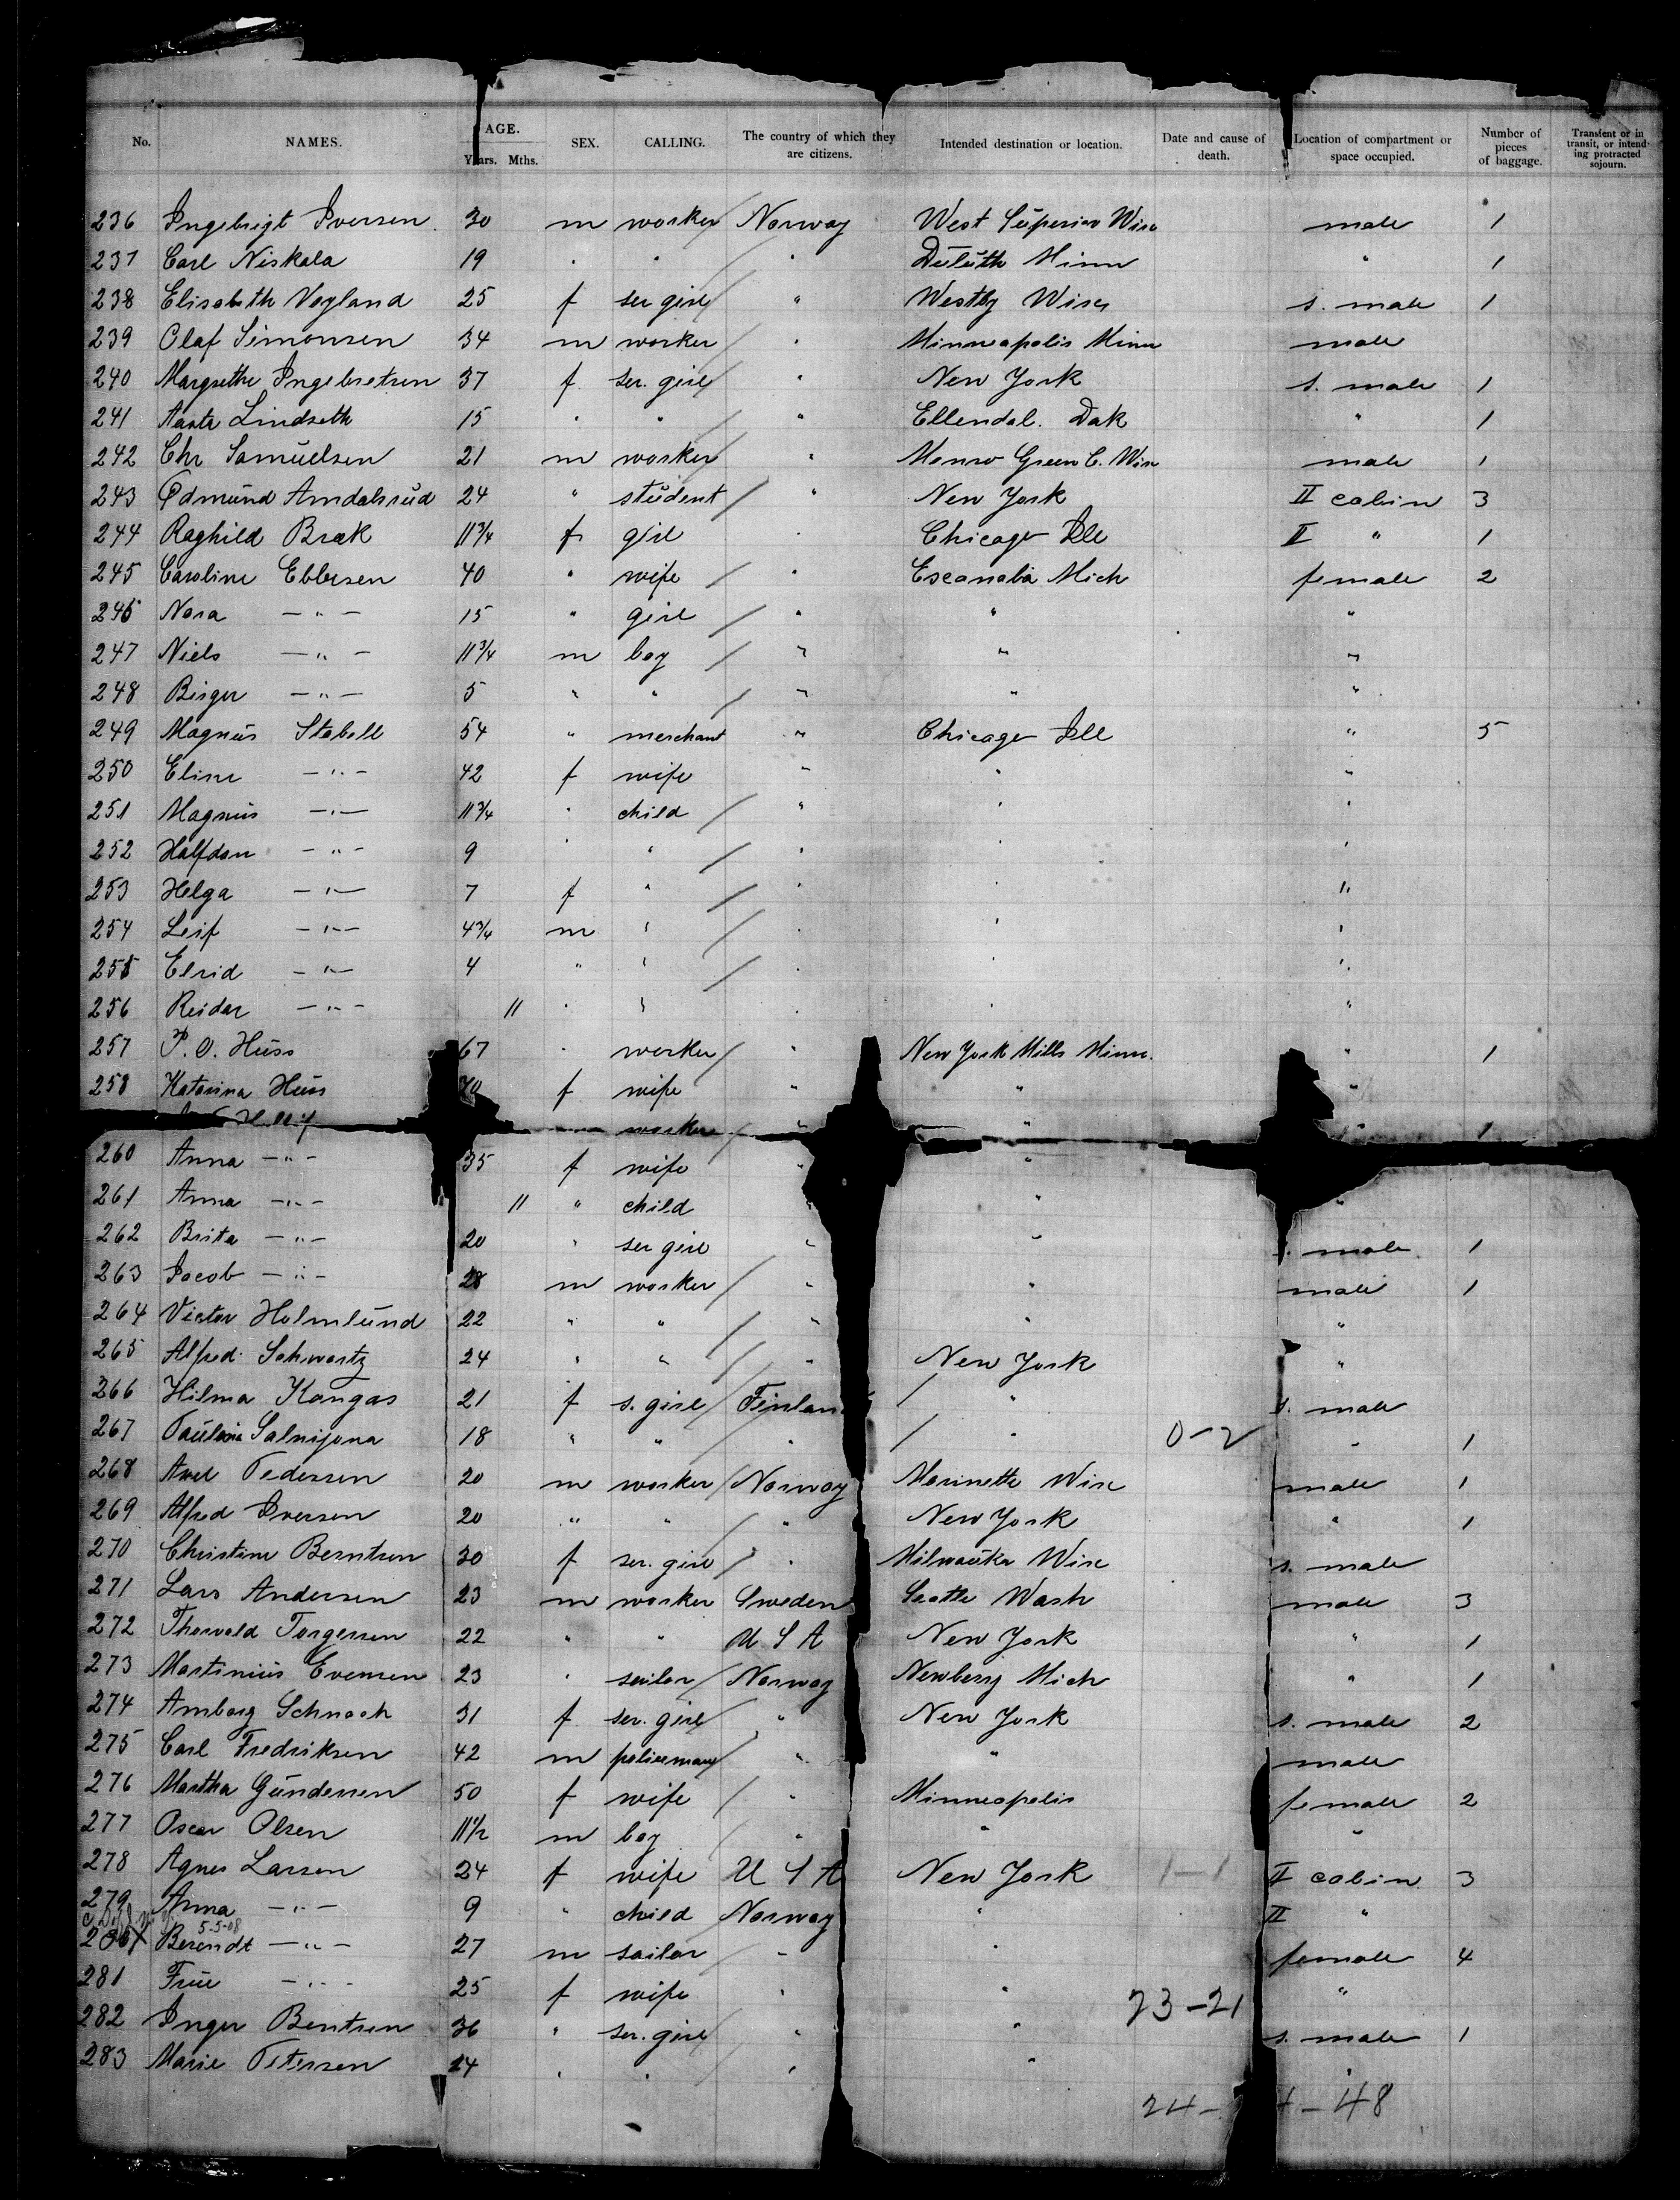 No. NAMES. AGE. Years. Mths. SEX. CALLING. The country of which they are citizens. Intended destination or location. Date and cause of death. Location of compartment or space occupied. Number of pieces of baggage. Transient or in transit, or intending protracted sojourn.
236 Ingebrigt Iversen 30 m worker Norway West Superior Wisc male 1
237 Carl Niskala 19 " " " Duluth Minn " 1
238 Elisabeth Vogland 25 f ser girl " Westby Wisc s. male 1
239 Olaf Simonsen 34 m worker " Minneapolis Minn male
240 Margrethe Ingebretsen 37 f ser. girl " New York s. male 1
241 Lindseth 15 " " " Ellendal. Dak " 1
242 Chr Samuelsen 21 m worker " Monro Green C. Wisc male 1
243 Edmund Amdalsrud 24 " student " New York II cabin 3
244 Raghild Bræk 11 3/4 f girl " Chicago Ill II " 1
245 Caroline Ebbesen 40 " wife " Escanaba Mich female 2
246 Nora — " — 15 " girl " " "
247 Niels — " — 11 3/4 m boy " " "
248 Birger — " — 5 " " " " "
249 Magnus Stabell 54 " merchant " Chicago Ill " 5
250 Eline — " — 42 f wife " " "
251 Magnus — " — 11 3/4 " child " " "
252 Halfdan — " — 9 " " " " "
253 Helga — " — 7 f " " " "
254 Leif — " — 4 3/4 m " " " "
255 Elrid — " — 4 " " " " "
256 Reidar — " — 11 " " " " "
257 P. O. Huss 67 " worker " New York Mills Minn. " 1
258 Katarina Huss 70 f wife " " "
worker " " " 1
260 Anna — " — 35 f wife " "
261 Anna — " — 11 " child " "
262 Brita — " — 20 " ser girl " " s. male 1
263 Jacob — " — 28 m worker " " male 1
264 Victor Holmlund 22 " " " " "
265 Alfred Schwartz 24 " " " New York "
266 Hilma Kangas 21 f s. girl Finland " s. male
267 18 " " " " 0-2 " 1
268 Axel Pedersen 20 m worker Norway Marinette Wisc male 1
269 Alfred Iversen 20 " " " New York " 1
270 Christine Berntsen 30 f ser. girl " Milwauke Wisc s. male
271 Lars Andersen 23 m worker Sweden Seattle Wash male 3
272 Thorvald Torgersen 22 " " U S A New York " 1
273 Martinius Evensen 23 " sailor Norway Newberry Mich " 1
274 31 f ser. girl " New York s. male 2
275 Carl Fredriksen 42 m policeman " " male
276 Martha Gundersen 50 f wife " Minneapolis female 2
277 Oscar Olsen 11 1/2 m boy " " "
278 Agnes Larsen 24 f wife U S A New York 1-1 II cabin 3
279 Anna — " — 9 " child Norway II "
5-5-08
280 X Berendt — " — 27 m sailor " " female 4
281 Frue — " — 25 f wife " " 23-21 "
282 Inger Bentsen 36 " ser. girl " " s. male 1
283 Marie Petersen 24 " " " " "
24- 4-48